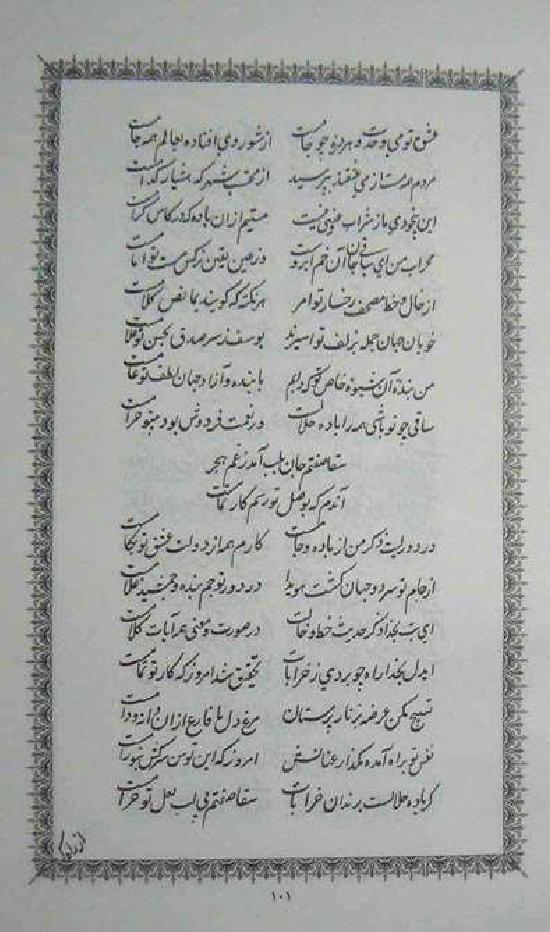 عشق تو می وحدت و هر دیده چو جامست از شور وی افتاده بعالم همه جامست
مردم همه مستاز می عشقند بپرسید از محتسب شهر که هشیار کدامست
این بیخودی ما ز شراب عنبی نیست مستیم از آن باده که در کاس کرامست
محراب من ای ساقی جان آن خم ابروست در عین یقین نرگس مست تو امامست
از خال و خط مصحف رخسار تو امر هر نکته که گویند بما نص کلامست
خوبان جهان جمله بزلف تو اسیرند یوسف ز سر صدق بحسن تو غلامست
من بنده آن شیوه خاص تو که دایم با بنده و آزاد جهان لطف تو عامست
ساقی چو تو باشی همه را باده حلالست در نعمت فردوس بود بیتو حرامست
سقا صفتم جان بلب آمد ز غم هجر
آندم که بوصل تو رسم کار تمامست
در دور لبت ذکر من از باده و جامست کارم همه از دولت عشق تو بکامست
از جام تو سر دو جهان گشت هویدا در دور تو جم بنده و جمشید غلامست
ای بت بخدا ذکر حدیث خط و خالت در صورت و معنی همه آیات کلامست
ایدل بخدا راه چو بردی ز خرابات تحقیق شد امروز که کار تو تمامست
تسبیح مکن عرضه بزنار پرستان مرغ دل ما فارغ ازان دانه و دامست
نفس تو براه آمده مگذار عنانش امروز که این توسن سرکش بتو رامست
گر باده حلالست برندان خرابات سقا صفتم بی لب لعل تو حرامست
۱۰۱